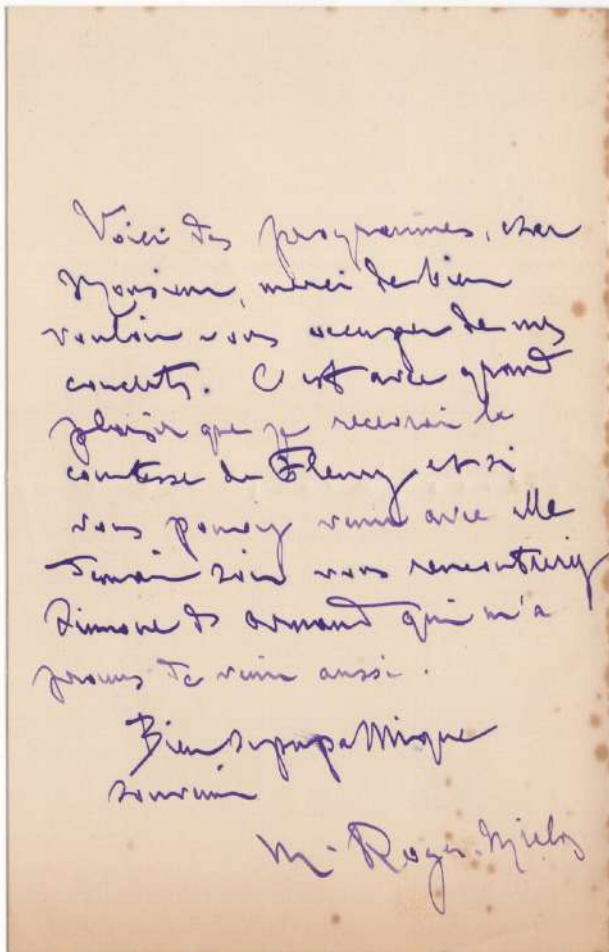 Voici des programmes, cher
Monsieur, merci de bien
vouloir vous occuper de mes
concerts. C'est avec grand
plaisir que je recevrai la
comtesse de Fleury, et si
vous pouviez venir avec elle
demain soir vous rencontreriez
Simone d'
qui m'a
promis de venir aussi.
Bien sympathique
souvenir
M. Roger-Miclos